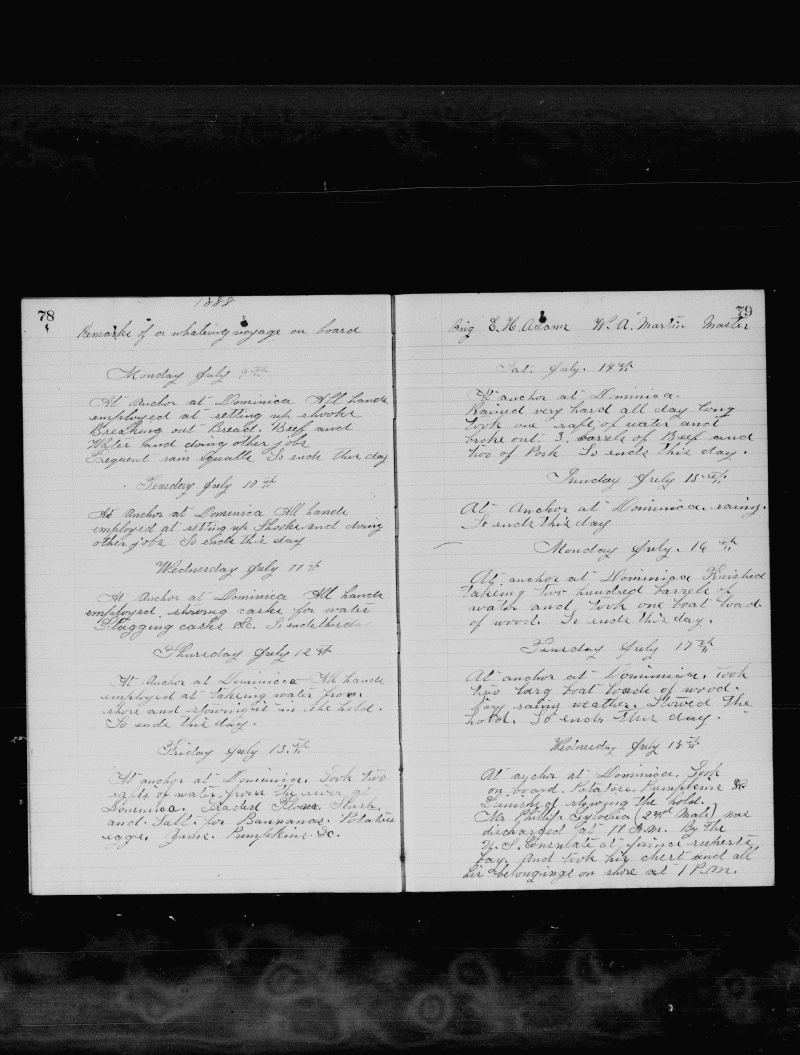 1888
78
Remarks of a whaleing voyage on board
Monday July 9th
At Anchor at Dominica All hands
employed at setting up shooks
Breaking out Bread. Beef and
Water and doing other jobs
Frequent rain squalls So ends this day
Tuesday July 10th
At Anchor at Domenica All hands
employed at setting up Shooks and doing
other jobs So ends this day
Wednesday July 11th
At Anchor at Dominica All hands
employed stowing casks for water
Flagging casks &c. So ends this da
Thursday July 12th
At Anchor at Dominica All hands
employed at takeing water from
shore and stowing it in the hold.
So ends this day.
Friday July 13.th
At anchor at Dominica. Took two
rafts of water from the river at
Dominica. Traded Flour, Pork
and Salt for Bannanas. Potatoes
eggs. Yams. Pumpkins. &c.
79
Brig E. H. Adams W. A. Martin Master
Sat. July. 14th
At anchor at Dominica.
Rained very hard all day long
took one raft of water and
broke out 3. barrels of Beef and
two of Pork So ends this day.
Sunday July 15th
At Anchor at Dominica rainy.
So ends this day
Monday July. 16th
At anchor at Dominica Finished
takeing two hundred barrels of
water and took one boat load
of wood. So ends this day.
Tuesday July 17th
At anchor at Dominica. took
two larg boat loads of wood.
very rainy weather. Stowed the
hold. So ends this day.
Wednesday July 18th
At anchor at Dominica. Took
on board. Potatoes. Pumpkins &c
Finished stowing the hold.
Mr Philip. Sylveria (2nd Mate) was
discharged at 11 A.m. By the
U. S. Consulate at prince ruperts
bay. And took his chest and all
his belongings on shore at 1 P.m.